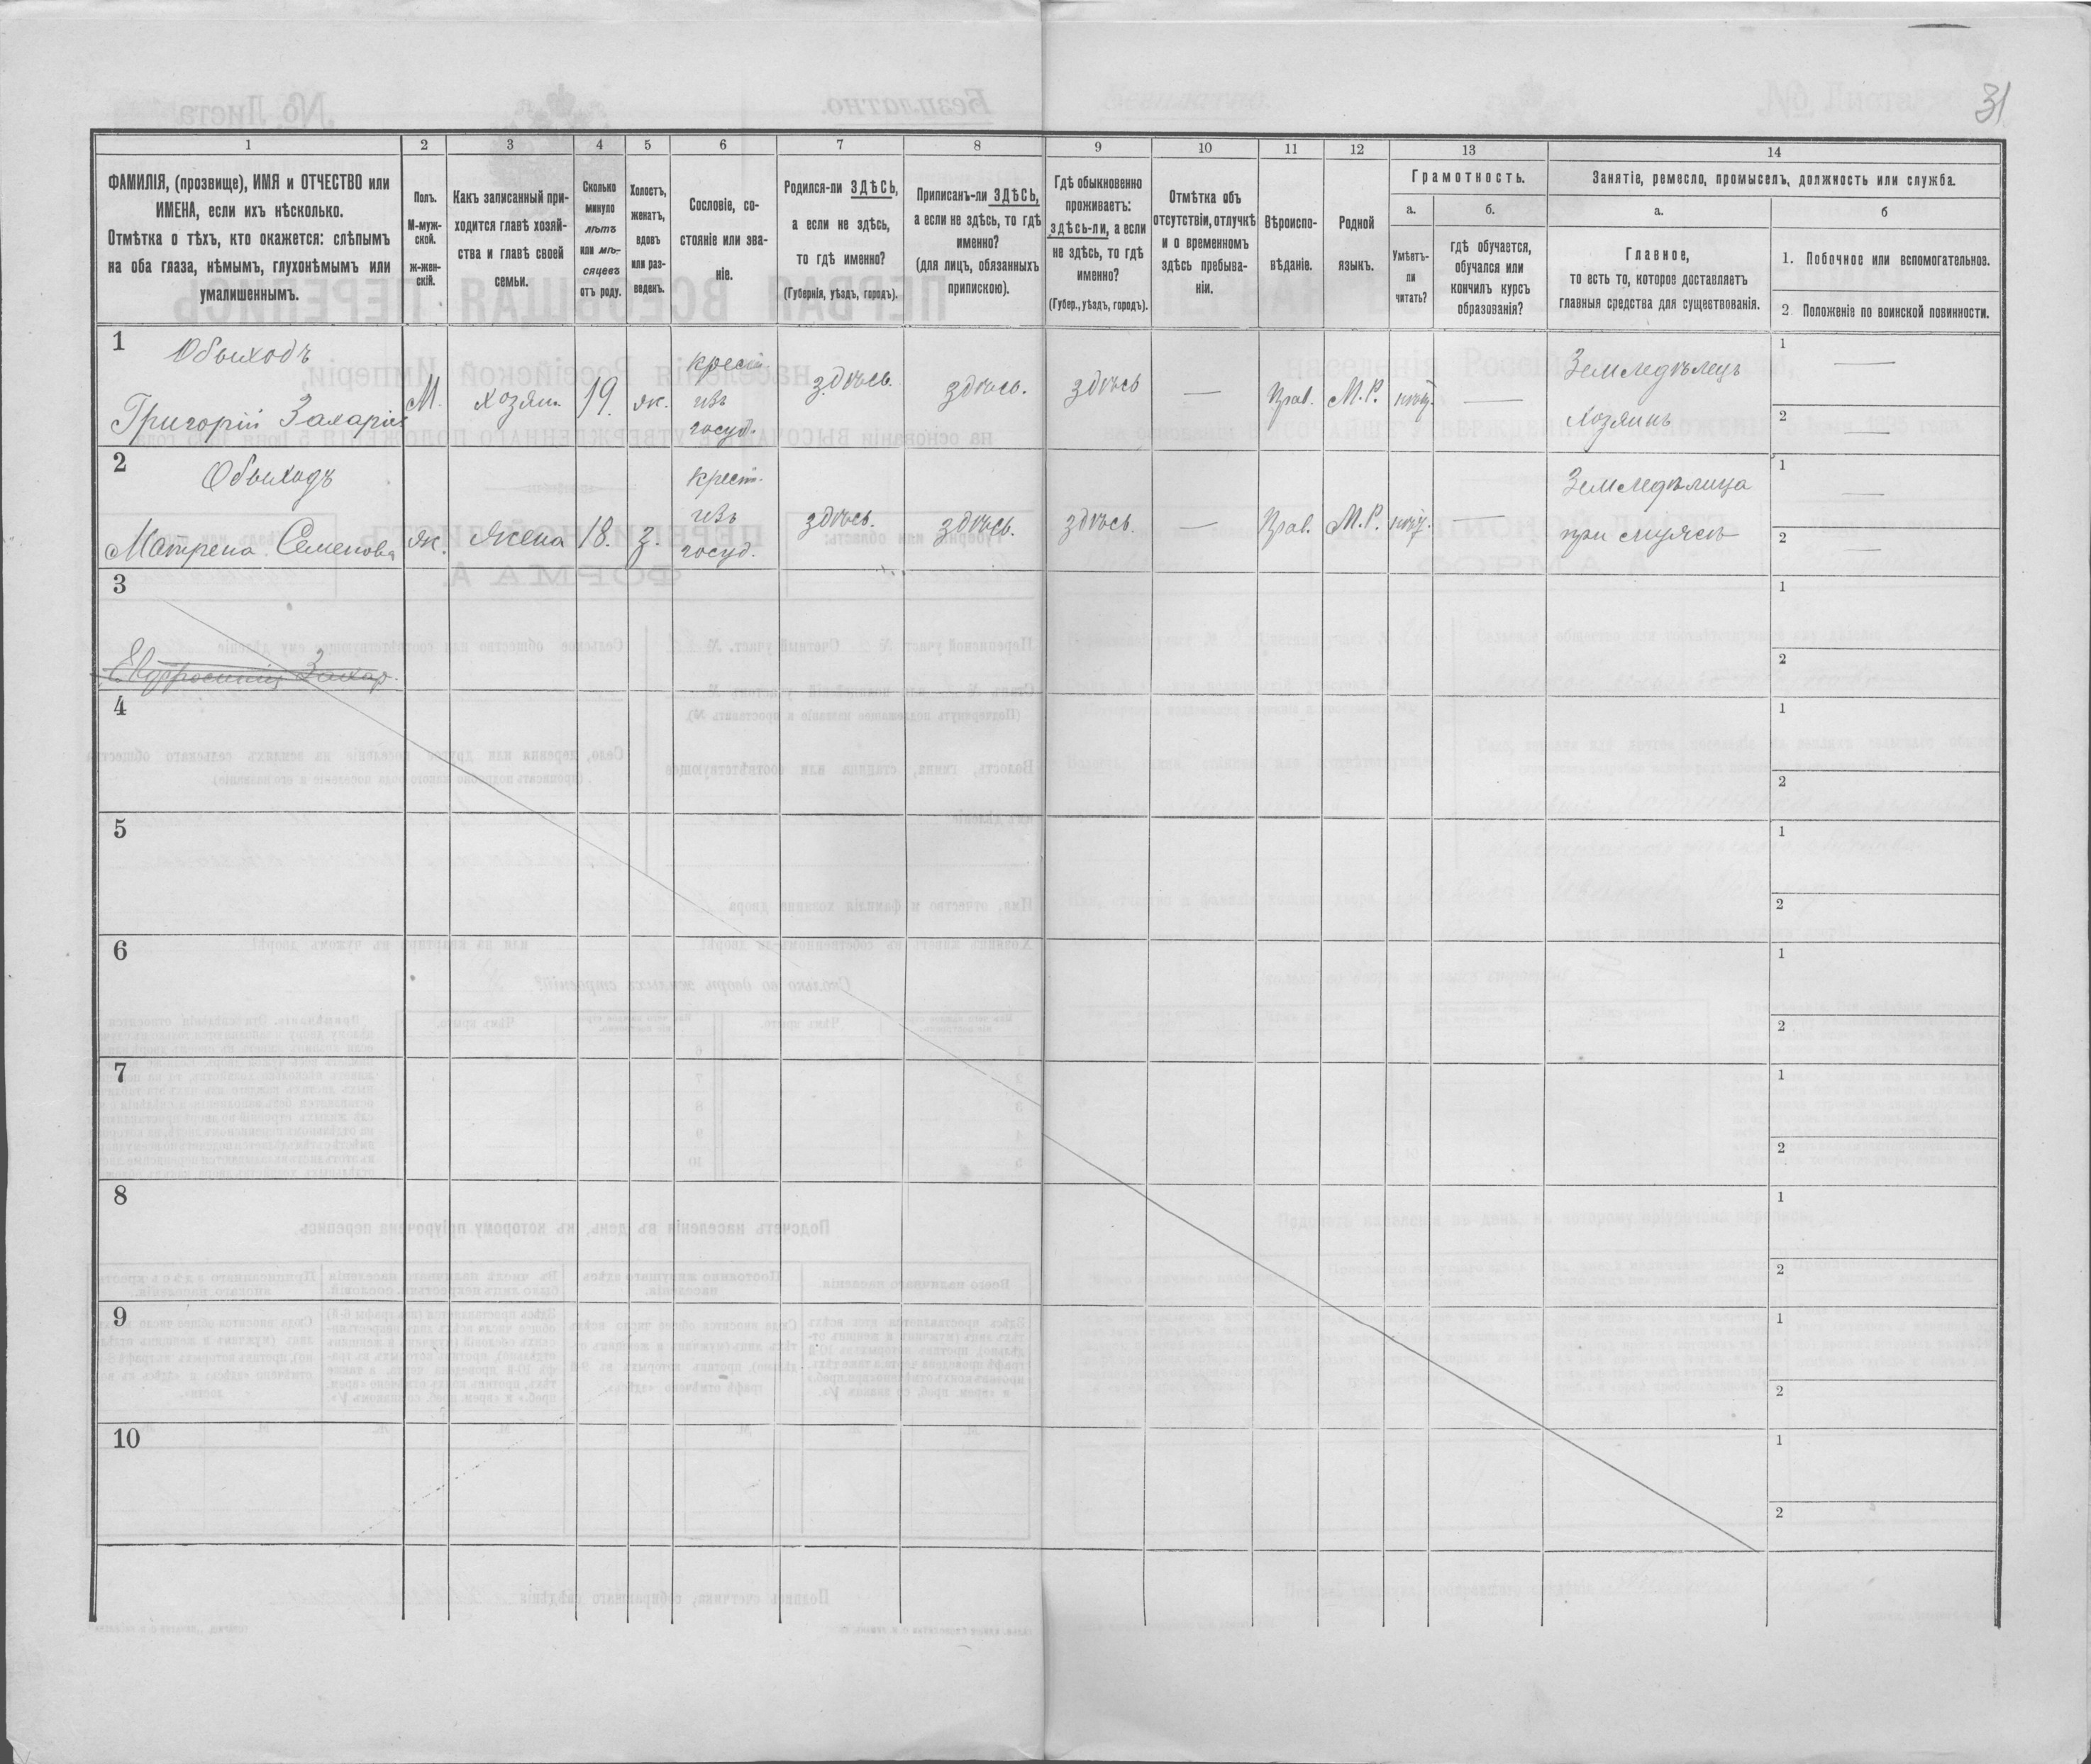 31
1 2 3 4 5 6 7 8 9 10 11 12 13 14
ФАМИЛІЯ, (прозвище), ИМЯ и ОТЧЕСТВО или
ИМЕНА, если ихъ нѣсколько.
Отмѣтка о тѣхъ, кто окажется: слѣпымъ
на оба глаза, нѣмымъ, глухонѣмымъ или
умалишеннымъ.
Полъ.
М-муж-
ской.
ж-жен-
скій.
Какъ записанный при-
ходится главѣ хозяй-
ства и главѣ своей
семьи.
Сколько
минуло
лѣтъ
или мѣ-
сяцевъ
отъ роду.
Холостъ,
женатъ,
вдовъ
или раз-
веденъ.
Сословіе, со-
стояніе или зва-
ніе.
Родился-ли ЗДѢСЬ,
а если не здѣсь,
то гдѣ именно?
(Губернія, уѣздъ, городъ).
Приписанъ-ли ЗДѢСЬ,
а если не здѣсь, то гдѣ
именно?
(для лицъ, обязанныхъ
припискою).
Гдѣ обыкновенно
проживаетъ:
здѣсь-ли, а если
не здѣсь, то гдѣ
именно?
(Губер., уѣздъ, городъ).
Отмѣтка объ
отсутствіи, отлучкѣ
и о временномъ
здѣсь пребыва-
ніи.
Вѣроиспо-
вѣданіе.
Родной
языкъ.
Грамотность.
а.
Умѣетъ-
ли
читать?
б.
гдѣ обучается,
обучался или
кончилъ курсъ
образованія?
Занятіе, ремесло, промыселъ, должность или служба.
а.
Главное,
то есть то, которое доставляетъ
главныя средства для существованія.
б
1. Побочное или вспомогательное.
2. Положеніе по воинской повинности.
1
Обыходъ
Григорій Захаріев
М. хозяин 19. ж.
крест.
изъ
госуд.
здѣсь. здѣсь. здѣсь — Прав. М.Р. —
Земледѣлецъ
Хозяинъ
1 —
2 —
2
Обыходъ
Матрена Семенова
ж. жена 18. з.
крест.
изъ
госуд.
здѣсь. здѣсь. здѣсь. — Прав. М.Р. —
Земледѣлица
при мужѣ
1 —
2 —
3
Евфросинія Захар.
1
2
4
1
2
5
1
2
6
1
2
7
1
2
8
1
2
9
1
2
10
1
2